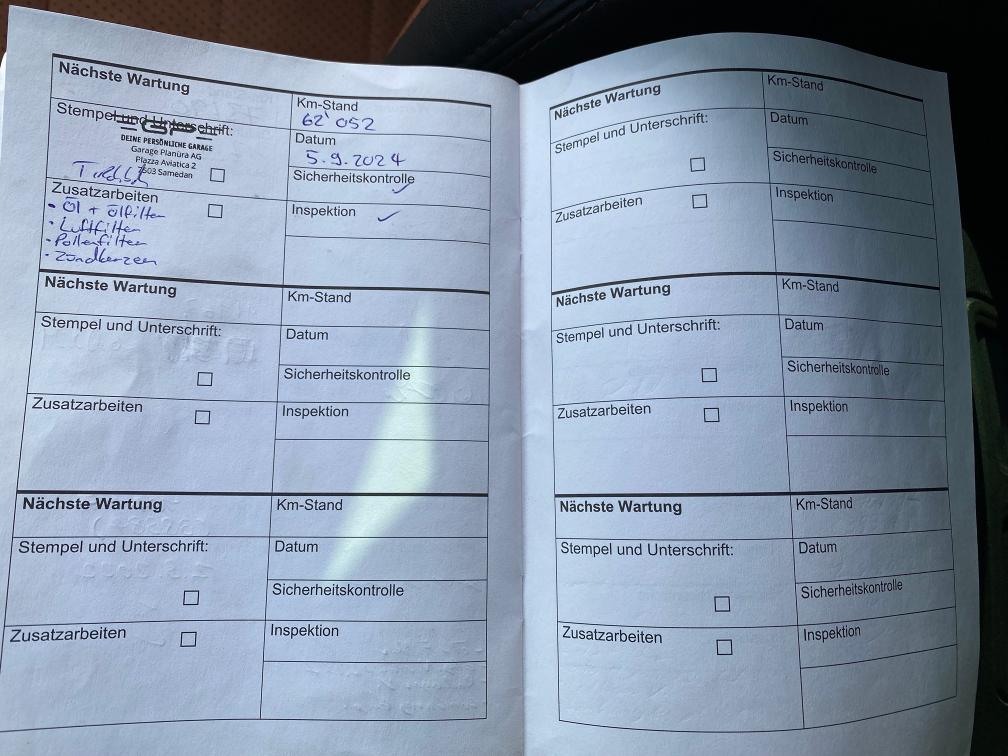 Nächste Wartung
Km-Stand
62'052
Stempel und Unterschrift:
DEINE PERSÖNLICHE GARAGE
Garage Planüra AG
Plazza Aviatica 2
7503 Samedan
Datum
5.9.2024
Sicherheitskontrolle ✓
Zusatzarbeiten
- Öl + Ölfilter
- Luftfilter
- Pollenfilter
- Zündkerzen
Inspektion ✓
Nächste Wartung
Km-Stand
Stempel und Unterschrift:
Datum
Sicherheitskontrolle
Zusatzarbeiten
Inspektion
Nächste Wartung
Km-Stand
Stempel und Unterschrift:
Datum
Sicherheitskontrolle
Zusatzarbeiten
Inspektion
Nächste Wartung
Km-Stand
Stempel und Unterschrift:
Datum
Sicherheitskontrolle
Zusatzarbeiten
Inspektion
Nächste Wartung
Km-Stand
Stempel und Unterschrift:
Datum
Sicherheitskontrolle
Zusatzarbeiten
Inspektion
Nächste Wartung
Km-Stand
Stempel und Unterschrift:
Datum
Sicherheitskontrolle
Zusatzarbeiten
Inspektion